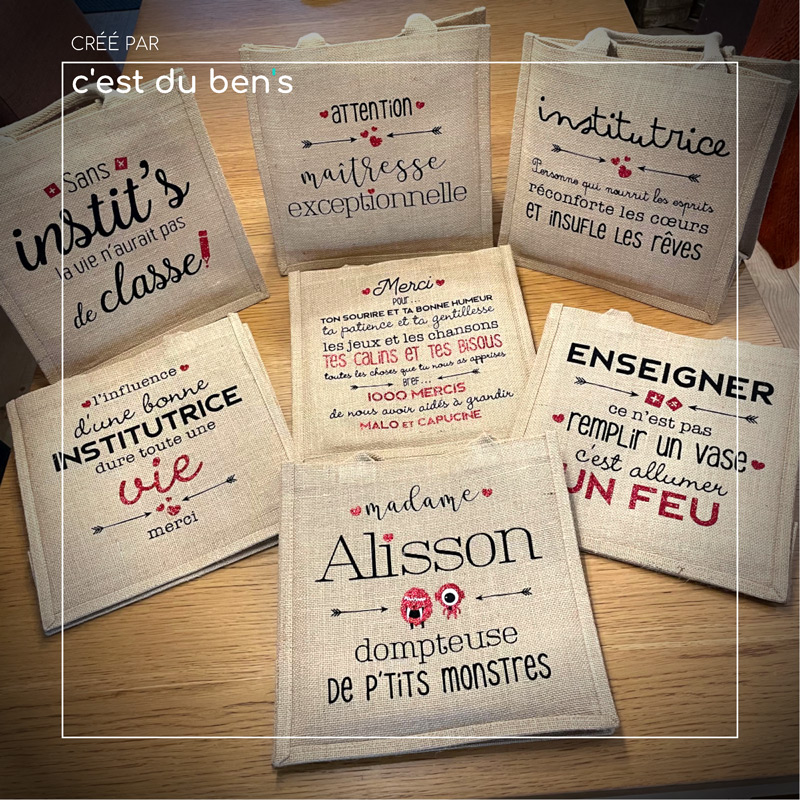 CRÉÉ PAR
c'est du ben's
Sans
instit's
la vie n'aurait pas
de classe!
attention
maîtresse
exceptionnelle
institutrice
Personne qui nourrit les esprits
réconforte les cœurs
et insufle les rêves
l'influence
d'une bonne
INSTITUTRICE
dure toute une
vie
merci
Merci
pour...
TON SOURIRE ET TA BONNE HUMEUR
ta patience et ta gentillesse
les jeux et les chansons
TES CALINS ET TES BISOUS
toutes les choses que tu nous as apprises
BREF...
1000 MERCIS
de nous avoir aidés à grandir
MALO ET CAPUCINE
ENSEIGNER
ce n'est pas
remplir un vase
c'est allumer
UN FEU
madame
Alisson
dompteuse
DE P'TITS MONSTRES